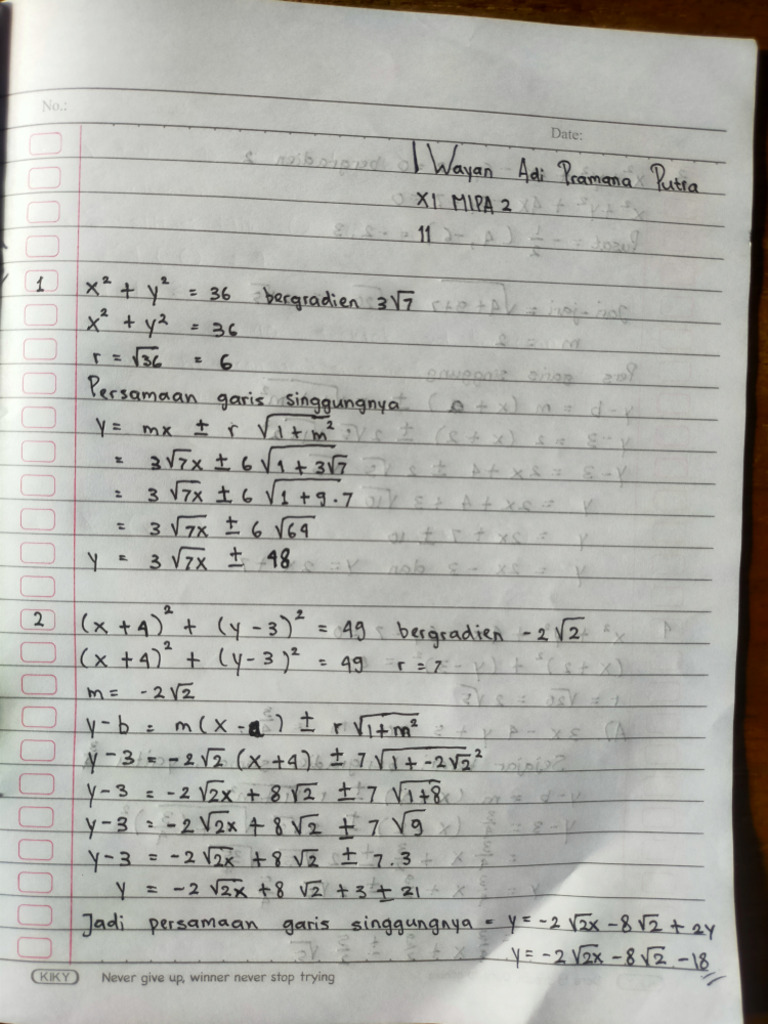 No.:
Date:
I Wayan Adi Pramana Putra
XI MIPA 2
11
1 x² + y² = 36 bergradien 3√7
x² + y² = 36
r = √36 = 6
Persamaan garis singgungnya
y = mx ± r √1 + m²
= 3√7x ± 6 √1 + 3√7
= 3 √7x ± 6 √1 + 9.7
= 3 √7x ± 6 √64
y = 3 √7x ± 48
2 (x + 4)² + (y - 3)² = 49 bergradien - 2√2
(x + 4)² + (y - 3)² = 49 r = 7
m = -2√2
y - b = m (x - a) ± r √1 + m²
y - 3 = -2√2 (x + 4) ± 7 √1 + -2√2²
y - 3 = -2 √2x + 8 √2 ± 7 √1+8
y - 3 = -2 √2x + 8 √2 ± 7 √9
y - 3 = -2 √2x + 8 √2 ± 7.3
y = -2 √2x + 8 √2 + 3 ± 21
Jadi persamaan garis singgungnya = y = -2 √2x - 8√2 + 24
y = -2 √2x - 8√2 - 18
KIKY Never give up, winner never stop trying